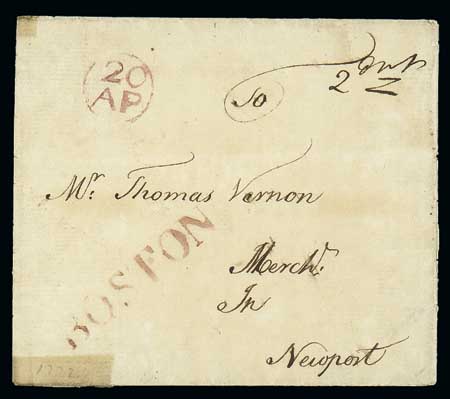 20
AP
So
2
Mr. Thomas Vernon
BOSTON
Mercht.
In
Newport